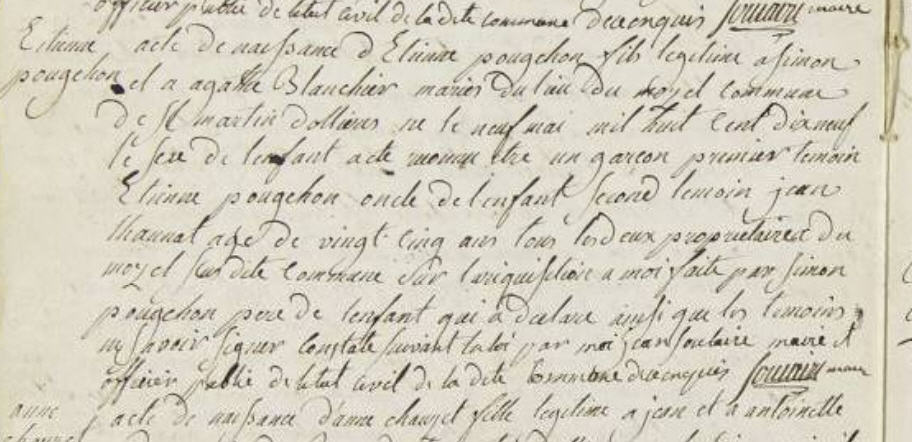 officier public de letat civil de la dite commune maire
Etienne
pougehon
acte de naissance d Etienne pougehon fils legitime a simon
et a agathe Blanchier mariés du lieu du moyel commune
de St martin dollieres ne le neuf mai mil huit cent dix neuf
le sexe de lenfant a ete un garçon premier temoin
Etienne pougehon oncle de lenfant second temoin jean
agé de vingt cinq ans tous les deux proprietaires du
moyel sus dite commune sur la requisition a moi faite par simon
pougehon pere de lenfant qui a declare ainsi que les temoins
ne savoir signer constate suivant la loi par moi jean maire et
officier public de letat civil de la dite commune maire
anne
acte de naissance danne chauvet fille legitime a jean et a antoinette